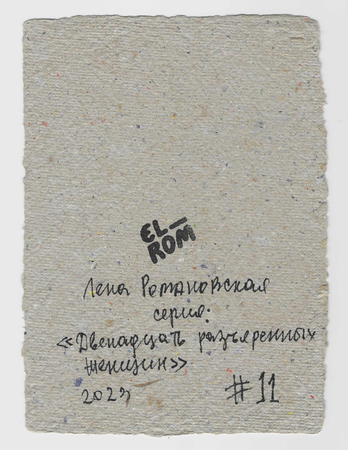 EL_
ROM
Лена Романовская
серия:
«Двенадцать разъяренных
женщин»
2023
#11